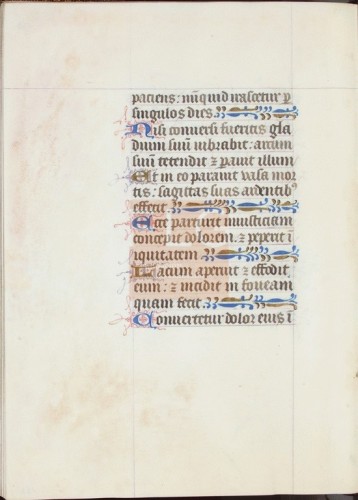 paciens: nũquid irascetur p
singulos dies
Nisi conuersi fueritis gla
dium suũ uibrabit: arcum
suũ tetendit ⁊ parauit illum
Et in eo parauit uasa mor
tis: sagittas suas ardentibꝰ
effecit
Ecce parturit iniusticiam
concepit dolorem: ⁊ peperit ĩ
iquitatem
Lacum aperuit ⁊ effodit
eum: ⁊ incidit in foueam
quam fecit
Conuertetur dolor eius ĩ